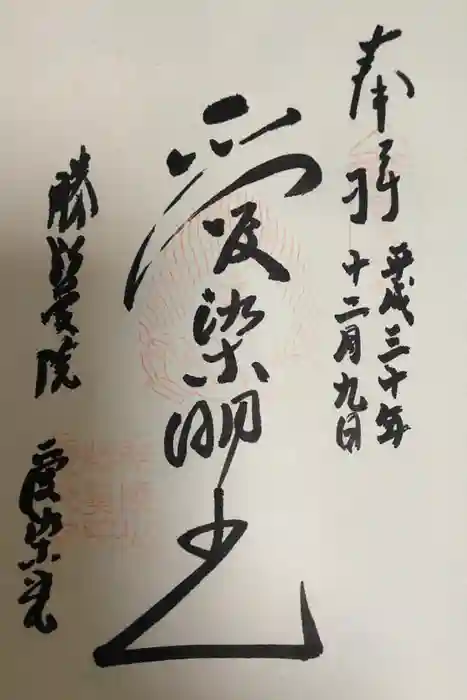 奉拝
平成三十年
十二月九日
愛染明王
勝鬘院 愛染堂